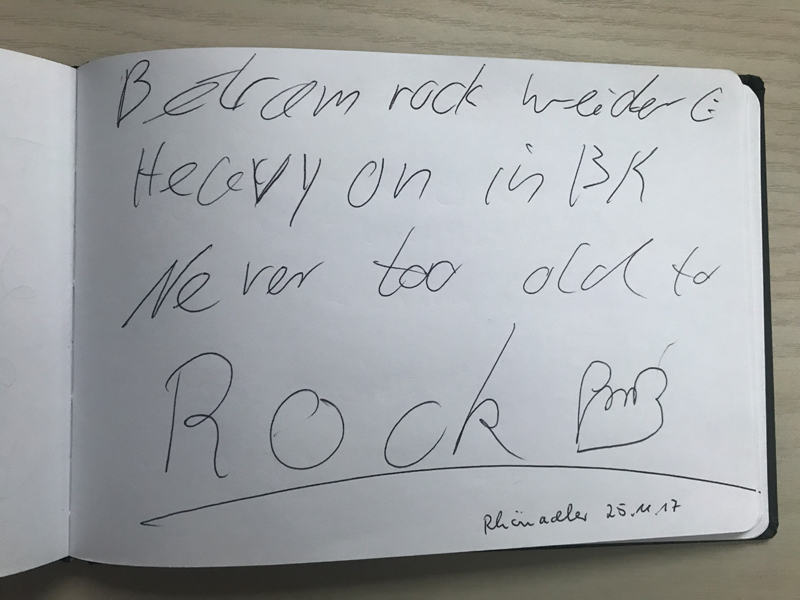 Betram rock weider (:
Heavy on in BK
Never too old to
Rock
Rhönadler 25.11.17